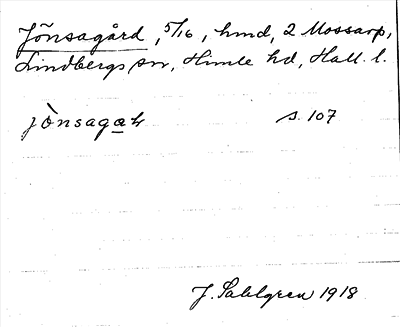 Jönsagård, 5/16, hmd, 2 Mossarp,
Lindbergs sn, Himle hd, Hall. l.
jònsagaʰr s. 107
J. Sahlgren 1918